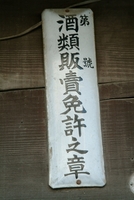 第號
酒類販賣免許之章